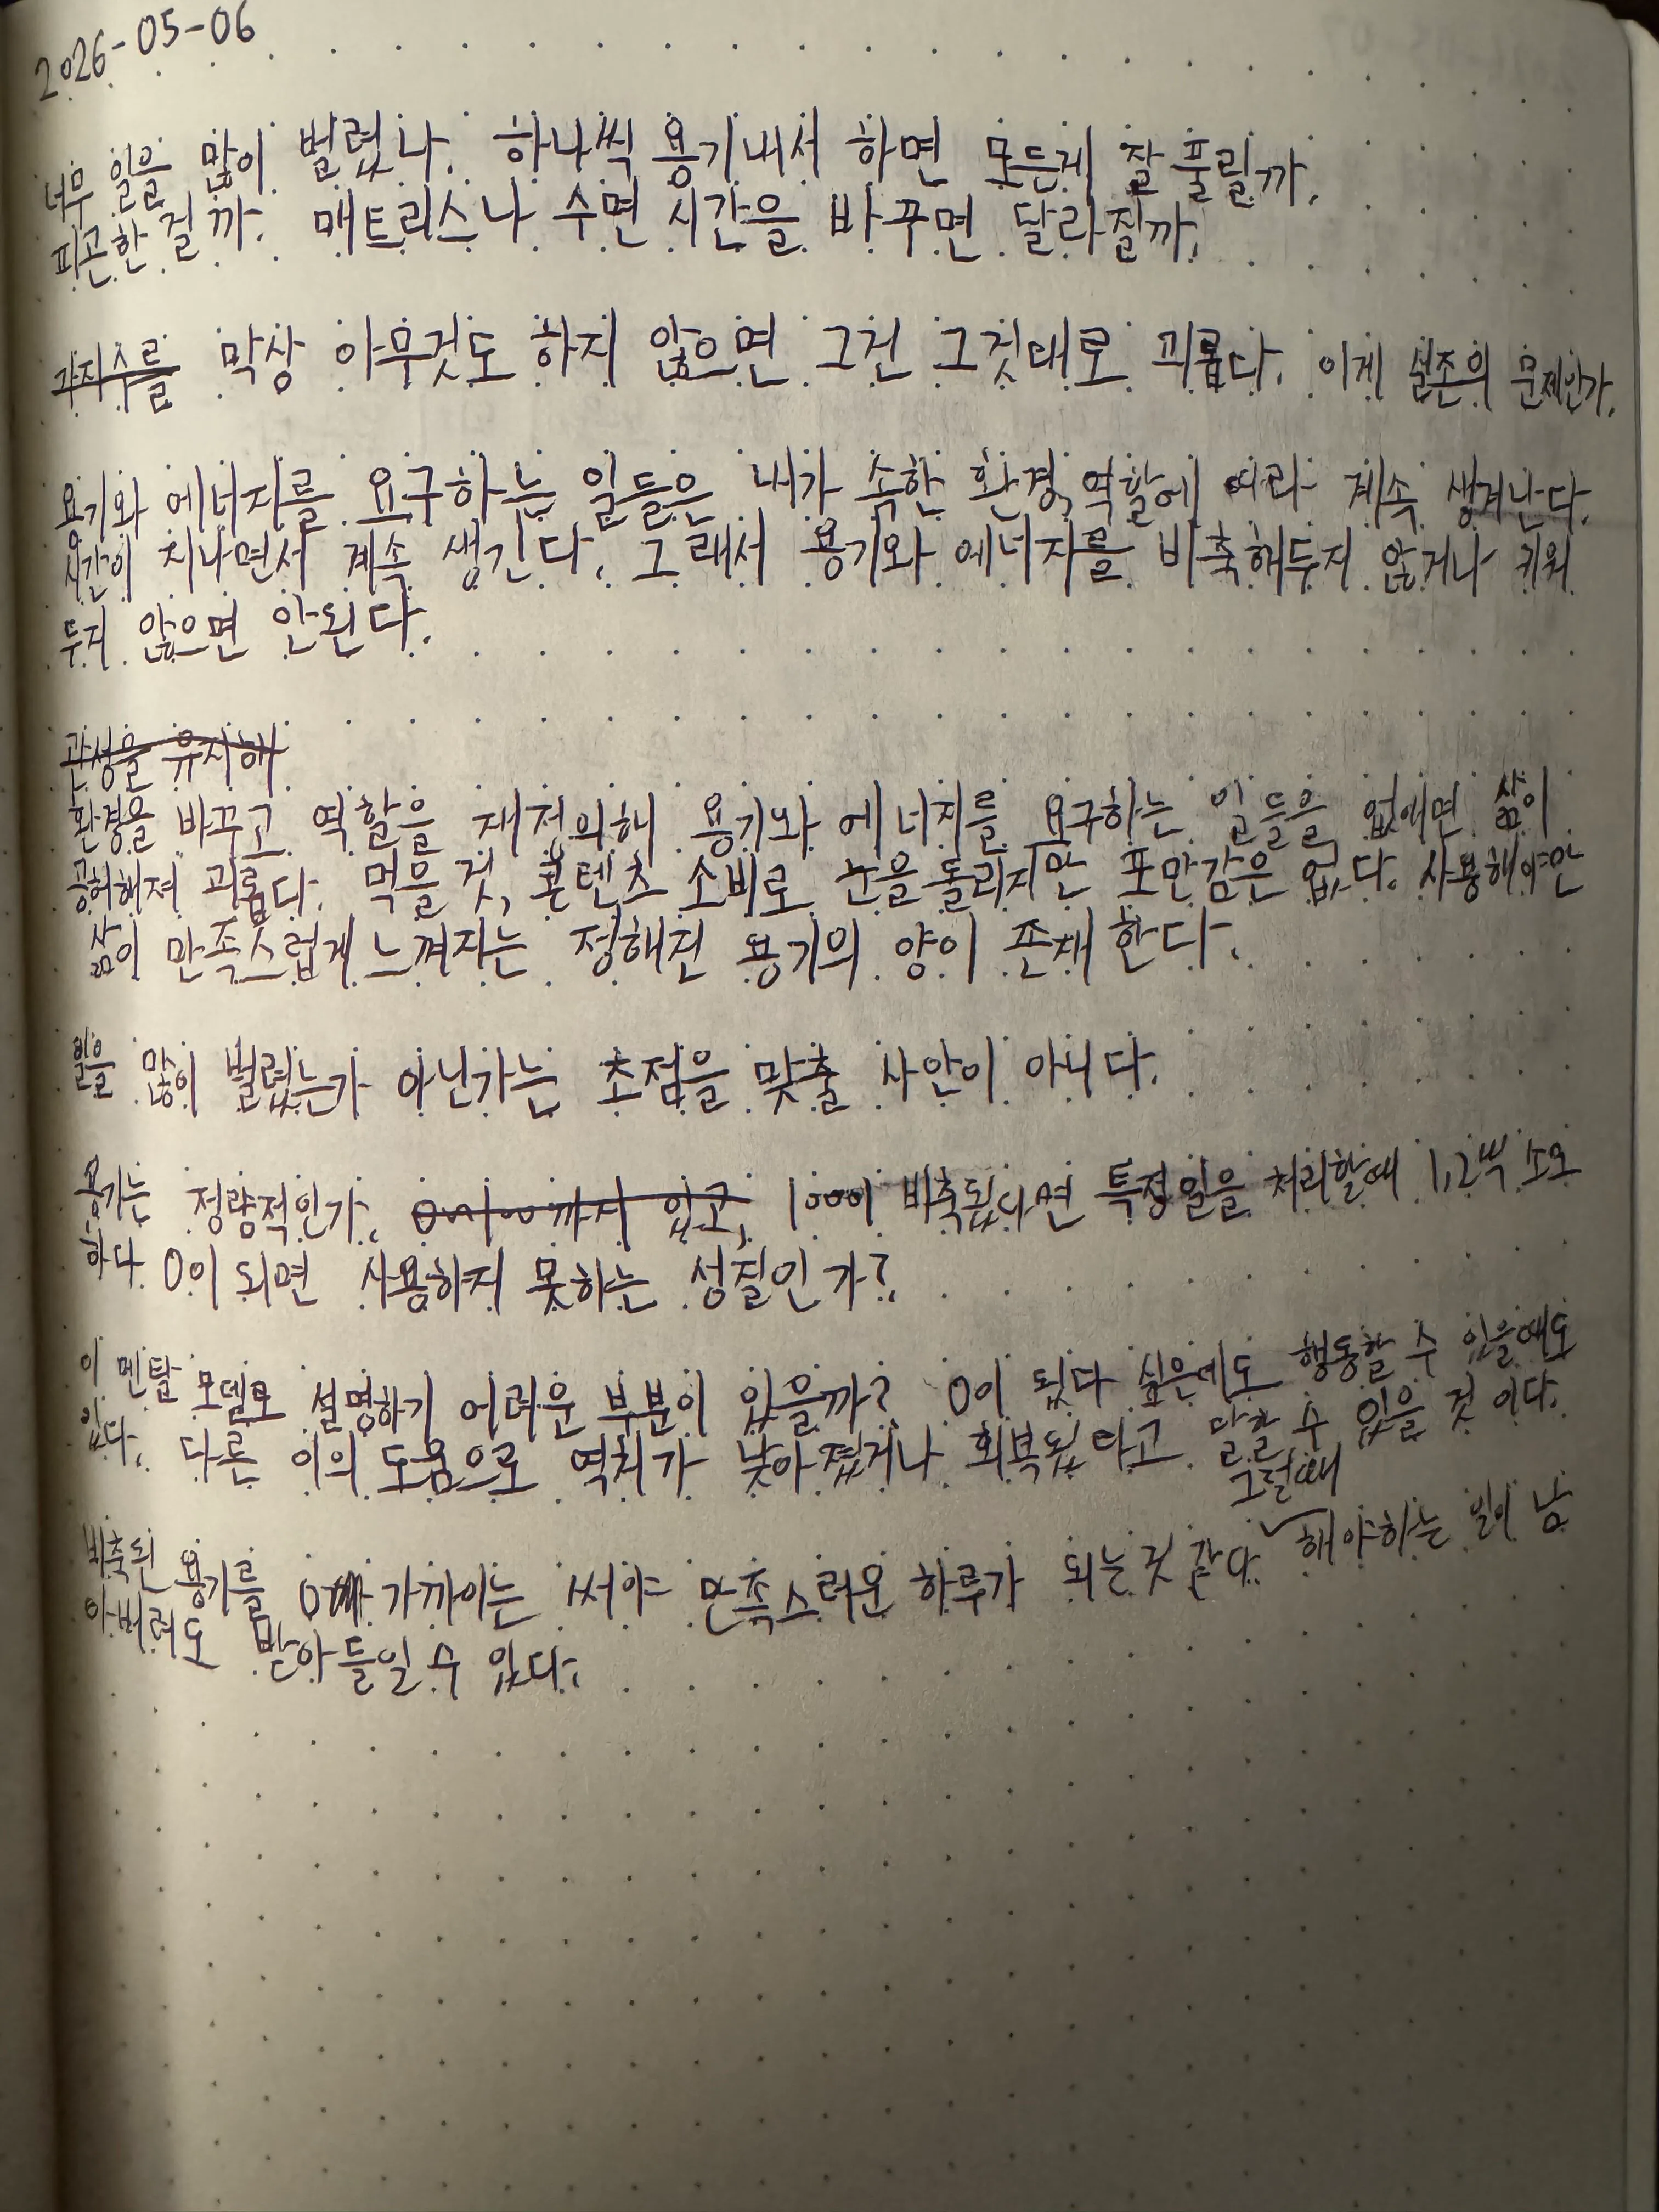 2026-05-06
너무 일을 많이 벌렸나. 하나씩 용기내서 하면 모든게 잘 풀릴까.
피곤한 걸까. 매트리스나 수면 시간을 바꾸면 달라질까.
막상 아무것도 하지 않으면 그건 그것대로 괴롭다. 이게 실존의 문제인가.
용기와 에너지를 요구하는 일들은 내가 속한 환경, 역할에 따라 계속 생겨난다.
시간이 지나면서 계속 생긴다. 그래서 용기와 에너지를 비축해두지 않거나 키워
두지 않으면 안된다.
관성을 유지해
환경을 바꾸고 역할을 재정의해 용기와 에너지를 요구하는 일들을 없애면 삶이
공허해져 괴롭다. 먹을 것, 콘텐츠 소비로 눈을 돌리지만 포만감은 없다. 사용해야만
삶이 만족스럽게 느껴지는 정해진 용기의 양이 존재한다.
일을 많이 벌렸는가 아닌가는 초점을 맞출 사안이 아니다.
용기는 정량적인가. 0~100까지 있고, 100이 비축됐다면 특정일을 처리할때 1,2씩 소모
하다 0이 되면 사용하지 못하는 성질인가?
이 멘탈 모델로 설명하기 어려운 부분이 있을까? 0이 됐다 싶은데도 행동할 수 있을때도
있다. 다른 이의 도움으로 역치가 낮아졌거나 회복됐다고 말할 수 있을 것이다.
그럴때
비축된 용기를 0에 가까이는 써야 만족스러운 하루가 되는것 같다 해야하는 일이 남
아버려도 받아들일 수 있다.